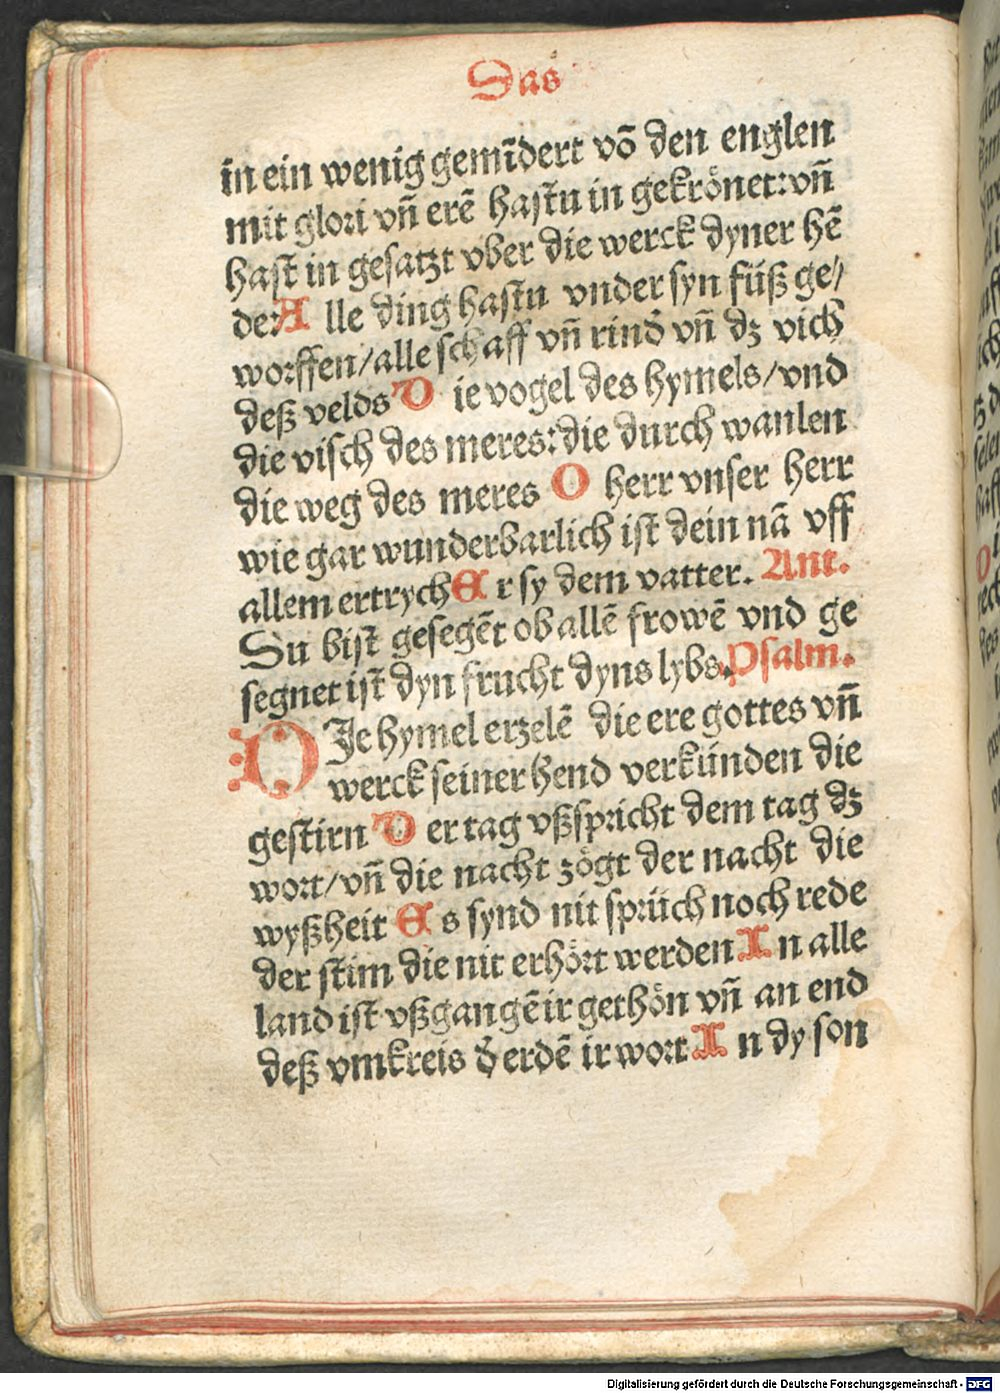 Das
in ein wenig gemīdert vō den englen
mit glori vñ erē hastu in gekrönet: vñ
hast in gesatzt vber die werck dyner hē
de: Alle ding hastu vnder syn füß ge/
worffen/alle schaff vñ rind vñ dz vich
deß velds Die vogel des hymels/vnd
die visch des meres: die durch wanlen
die weg des meres O herr vnser herr
wie gar wunderbarlich ist dein nā vff
allem ertrych Er sy dem vatter. Ant.
Du bist gesegēt ob allē frowē vnd ge
segnet ist dyn frucht dyns lybs. Psalm.
DJe hymel erzelē die ere gottes vñ
werck seiner hend verkünden die
gestirn Der tag vßspricht dem tag dz
wort/vñ die nacht zögt der nacht die
wyßheit Es synd nit sprüch noch rede
der stim die nit erhört werden In alle
land ist vßgangē ir gethön vñ an end
deß vmkreis d' erdē ir wort In dy son
Digitalisierung gefördert durch die Deutsche Forschungsgemeinschaft - DFG